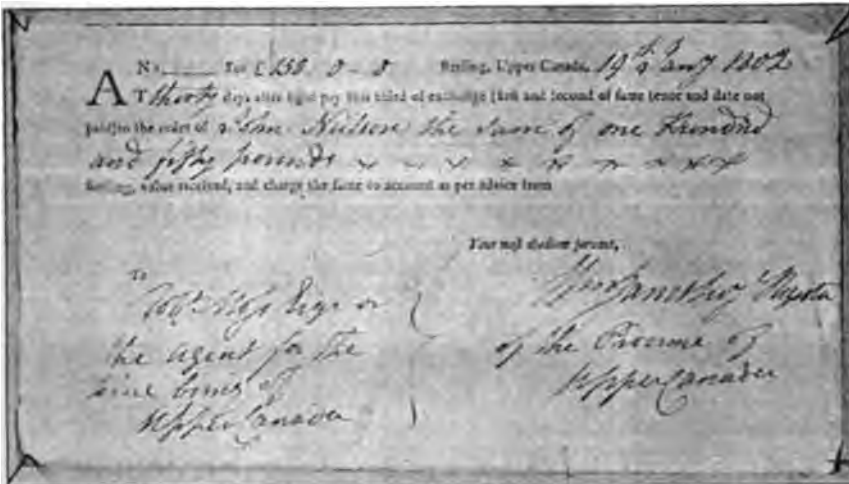 No. For £150. 0-0 Sterling, Upper Canada, 19th Jany 1802
AT thirty days after sight pay this third of exchange (first and second of same tenor and date not
paid) to the order of John Neilson the sum of one hundred
and fifty pounds
sterling, value received, and charge the same to account as per advice from
Your most obedient servant,
To
Robt. Esqr or
the agent for the
of
Upper Canada
of the Province of
Upper Canada